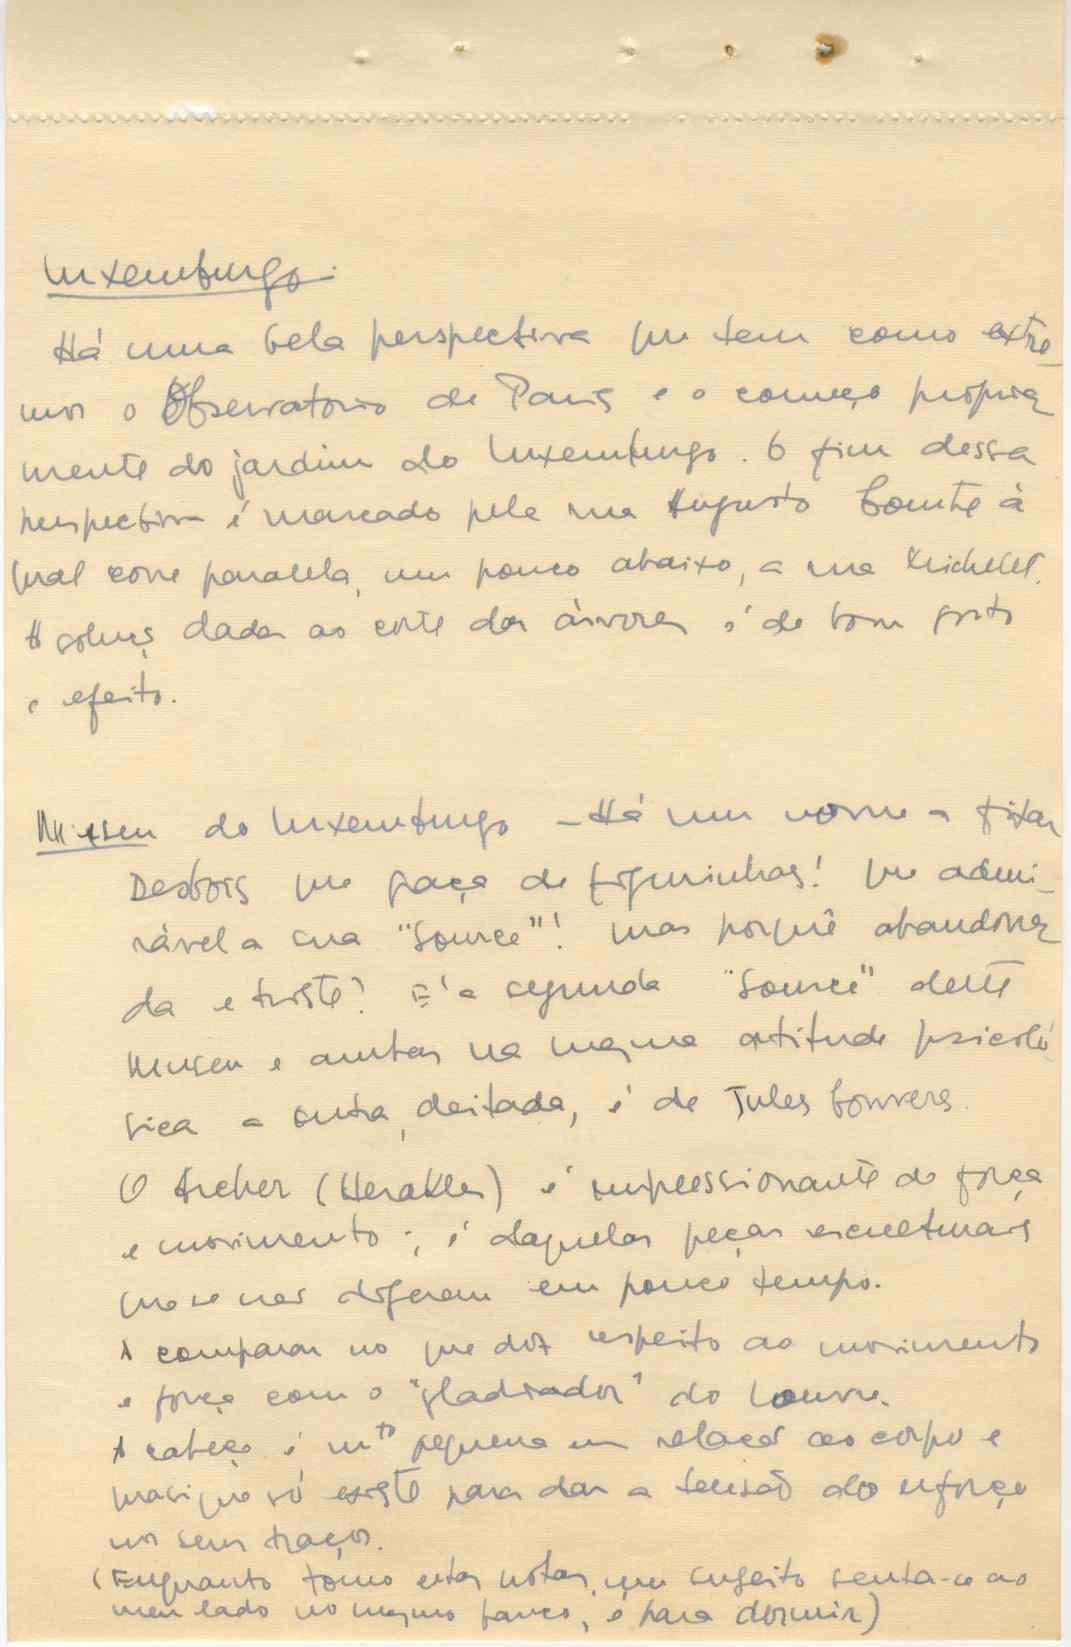 Luxemburgo.
Há uma bela perspectiva que tem como extre-
mos o Observatorio de Paris e o começo propria
mente do jardim do Luxemburgo. O fim dessa
perspectiva é marcado pela rua Augusto Comte à
qual corre paralela, um pouco abaixo, a rua Michelet.
A soluç dada ao corte das árvores é de bom gosto
e efeito.
Museu do Luxemburgo - Há um nome a fixar
Desbois que graça de figurinhas! que admi-
rável a sua "Source"! mas porquê abandona
da e triste? É a segunda "Source" deste
Museu e ambas na mesma atitude psicoló
gica a outra, deitada, é de Jules
O Archer (Herakles) é impressionante de força
e movimento; é daquelas peças esculturais
que se nos digeram em pouco tempo.
A comparar no que diz respeito ao movimento
e força com o "gladiador" do Louvre.
A cabeça é mto pequena em relação ao corpo e
quasi que só existe para dar a tensão do esforço
nos seus traços.
(Enquanto tomo estas notas, um sugeito senta-se ao
meu lado no mesmo banco, é para dormir)